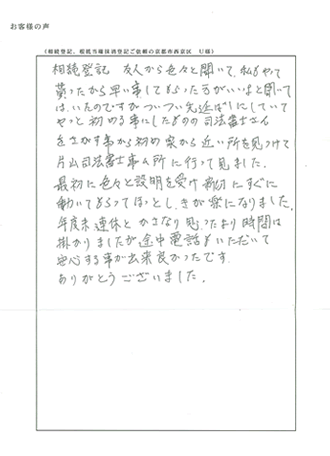 お客様の声
（相続登記、相抵当権抹消登記ご依頼の京都市西京区　U様）
相続登記　友人から色々と聞いて、私もやって
貰ったから早い事してもらった方がいいよと聞いて
はいたのですがついつい先延ばしにしていて
やっと初める事にしたものの司法書士さん
をさがす事から初め家から近い所を見つけて
片山司法書士事ム所に行って見ました。
最初に色々と説明を受け親切にすぐに
動いてもらってほっとし、きが楽になりました。
年度末連休とかさなり思ったより時間は
掛かりましたが途中電話もいただいて
安心する事が出来良かったです。
ありがとうございました。